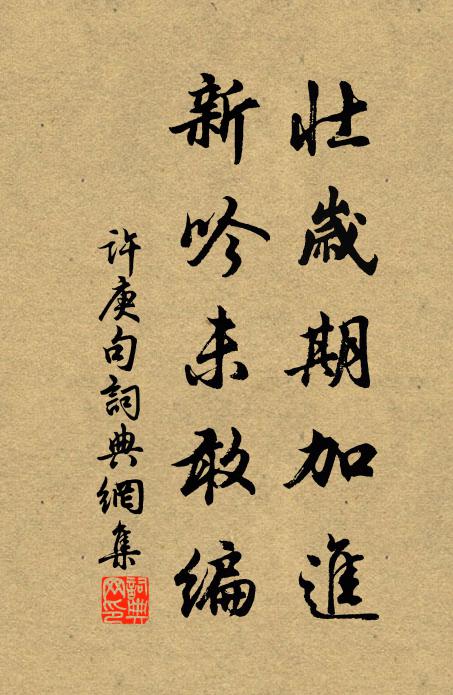 壯歲期加進
新吟未敢編
許庚句詞典網集
詞典网印